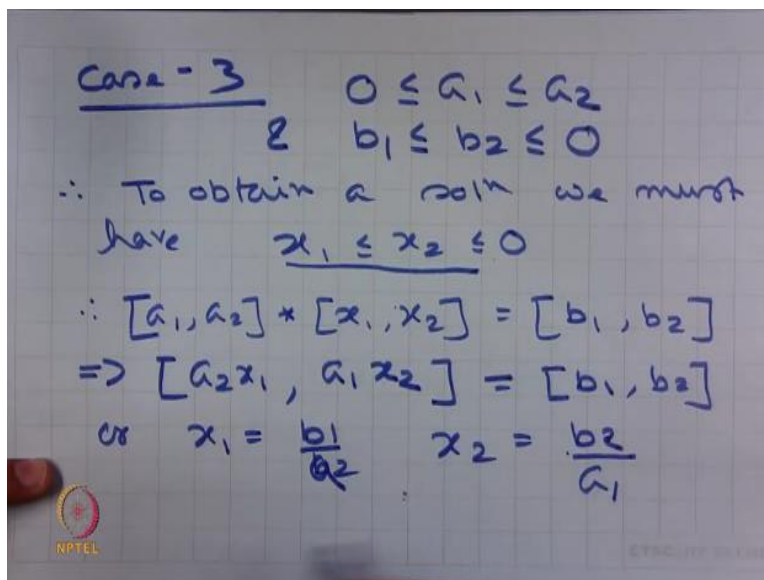 Case - 3 0 ≤ a₁ ≤ a₂
& b₁ ≤ b₂ ≤ 0
∴ To obtain a solⁿ we must
have x₁ ≤ x₂ ≤ 0
∴ [a₁, a₂] * [x₁, x₂] = [b₁, b₂]
=> [a₂x₁, a₁x₂] = [b₁, b₂]
or x₁ = b1/a2 x₂ = b2/a₁
NPTEL